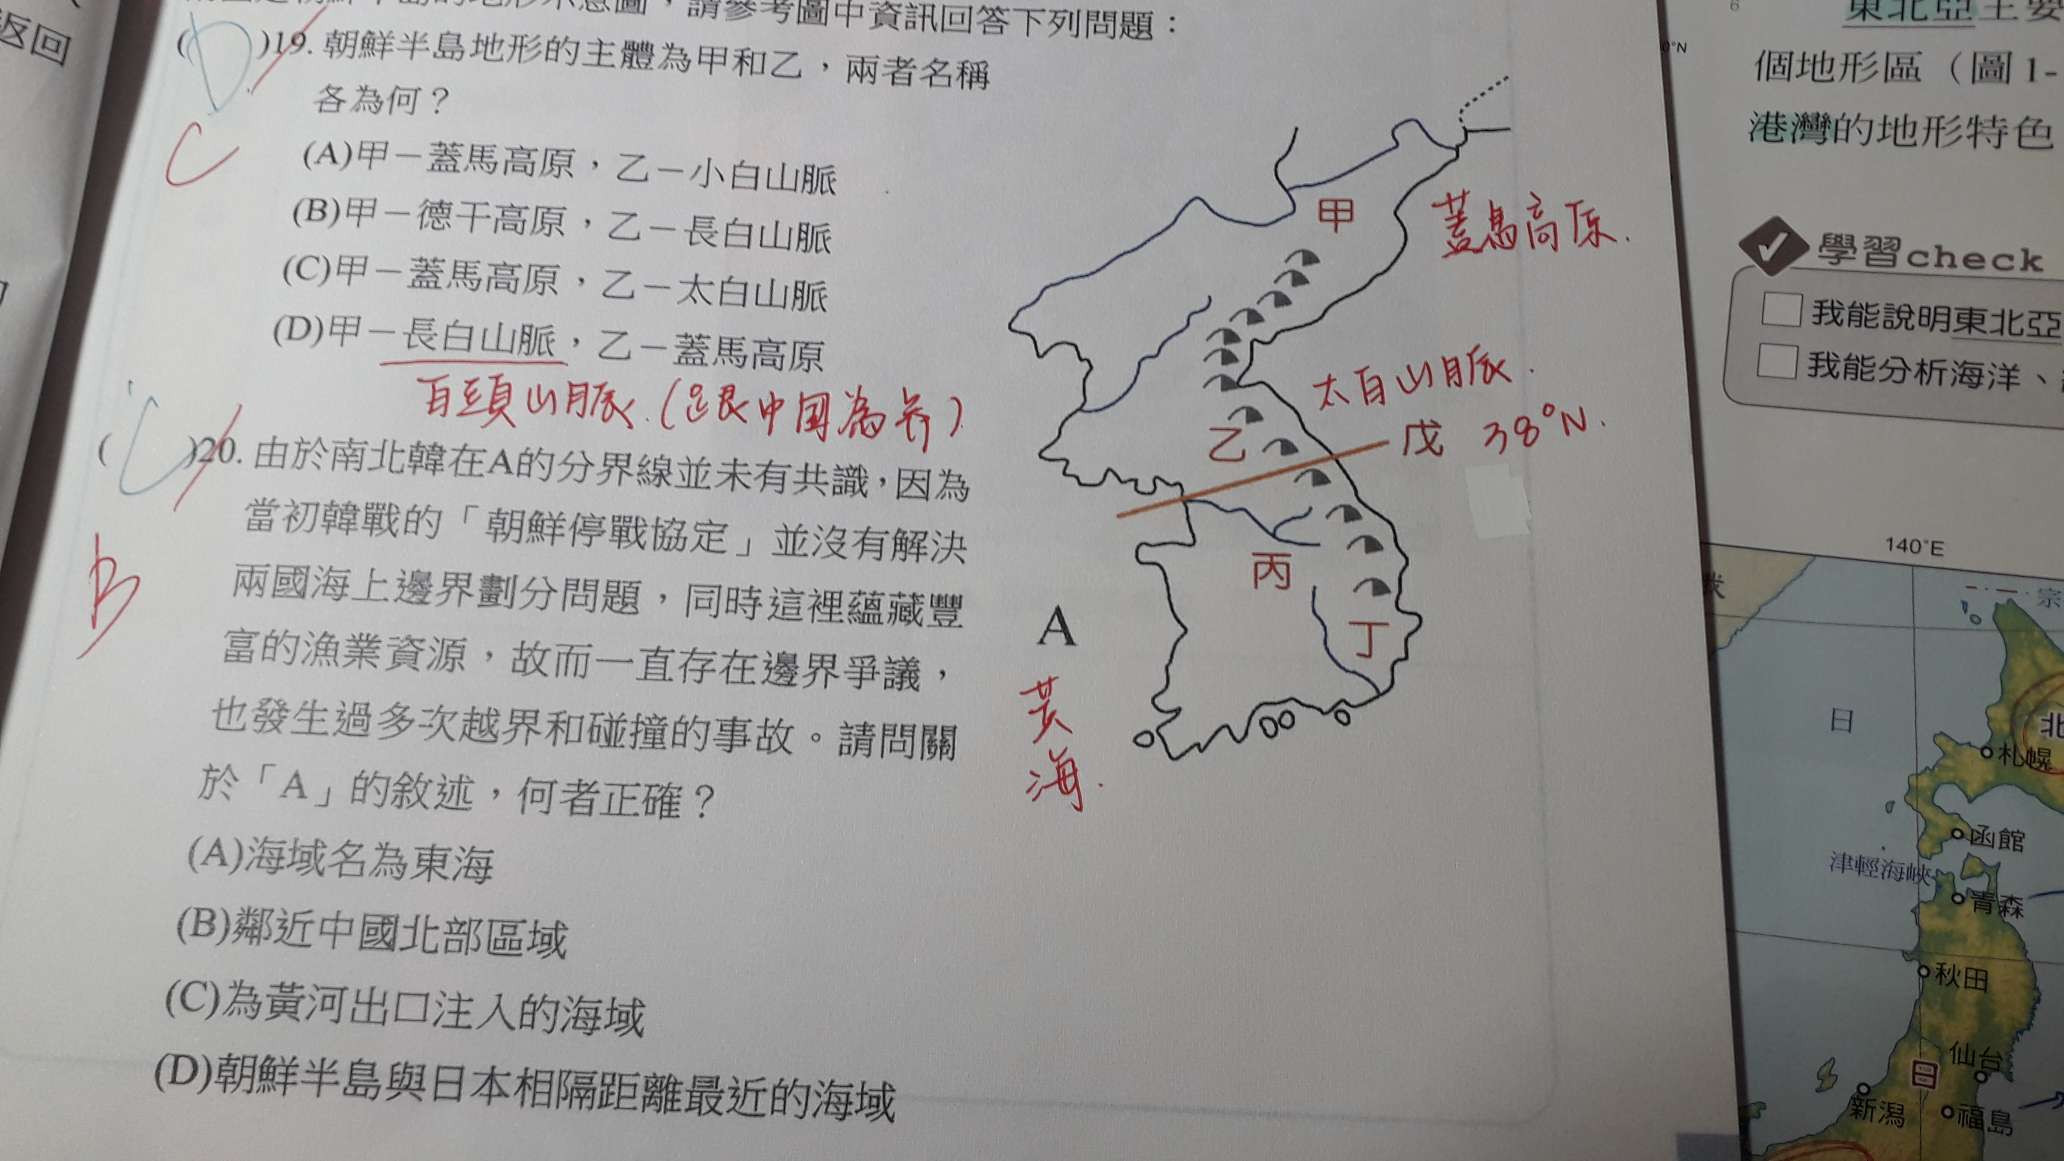 返回
請參考圖中資訊回答下列問題：
(D)19. 朝鮮半島地形的主體為甲和乙，兩者名稱
各為何？
C
(A)甲－蓋馬高原，乙－小白山脈
(B)甲－德干高原，乙－長白山脈
(C)甲－蓋馬高原，乙－太白山脈
(D)甲－長白山脈，乙－蓋馬高原
百頭山脈.(跟中國為界)
(C)20. 由於南北韓在A的分界線並未有共識，因為
當初韓戰的「朝鮮停戰協定」並沒有解決
B
兩國海上邊界劃分問題，同時這裡蘊藏豐
富的漁業資源，故而一直存在邊界爭議，
也發生過多次越界和碰撞的事故。請問關
於「A」的敘述，何者正確？
(A)海域名為東海
(B)鄰近中國北部區域
(C)為黃河出口注入的海域
(D)朝鮮半島與日本相隔距離最近的海域
甲
蓋馬高原.
太白山脈.
乙
戊 38°N.
丙
丁
A
黃
海.
東北亞主要
個地形區（圖1-
港灣的地形特色
學習check
我能說明東北亞
我能分析海洋、
140°E
宗
日
北
札幌
函館
津輕海峽
青森
秋田
仙台
日
新潟
福島